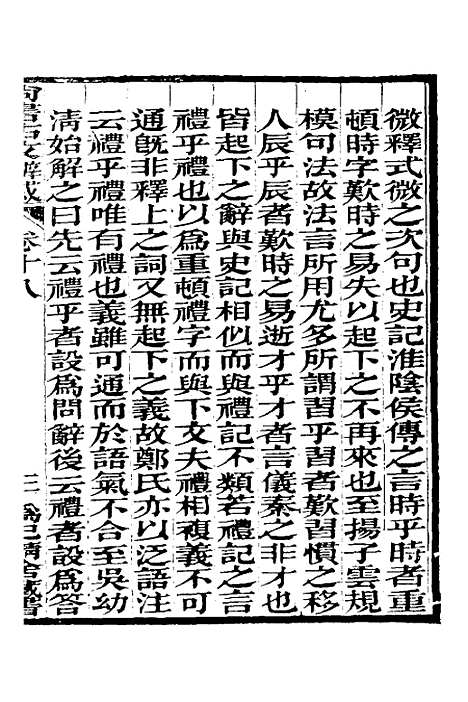 微釋式微之次句也史記淮陰侯傳之言時乎時者重
頓時字歎時之易失以起下之不再來也至揚子雲規
模句法故法言所用尤多所謂習乎習者歎習慣之移
人辰乎辰者歎時之易逝才乎才者言儀秦之非才也
皆起下之辭與史記相似而與禮記不類若禮記之言
禮乎禮也以爲重頓禮字而與下文夫禮相複義不可
通旣非釋上之詞又無起下之義故鄭氏亦以泛語注
云禮乎禮唯有禮也義雖可通而於語氣不合至吳幼
淸始解之曰先云禮乎者設爲問辭後云禮者設爲答
尚書古文辨惑 卷十八 三 爲己精舍藏書